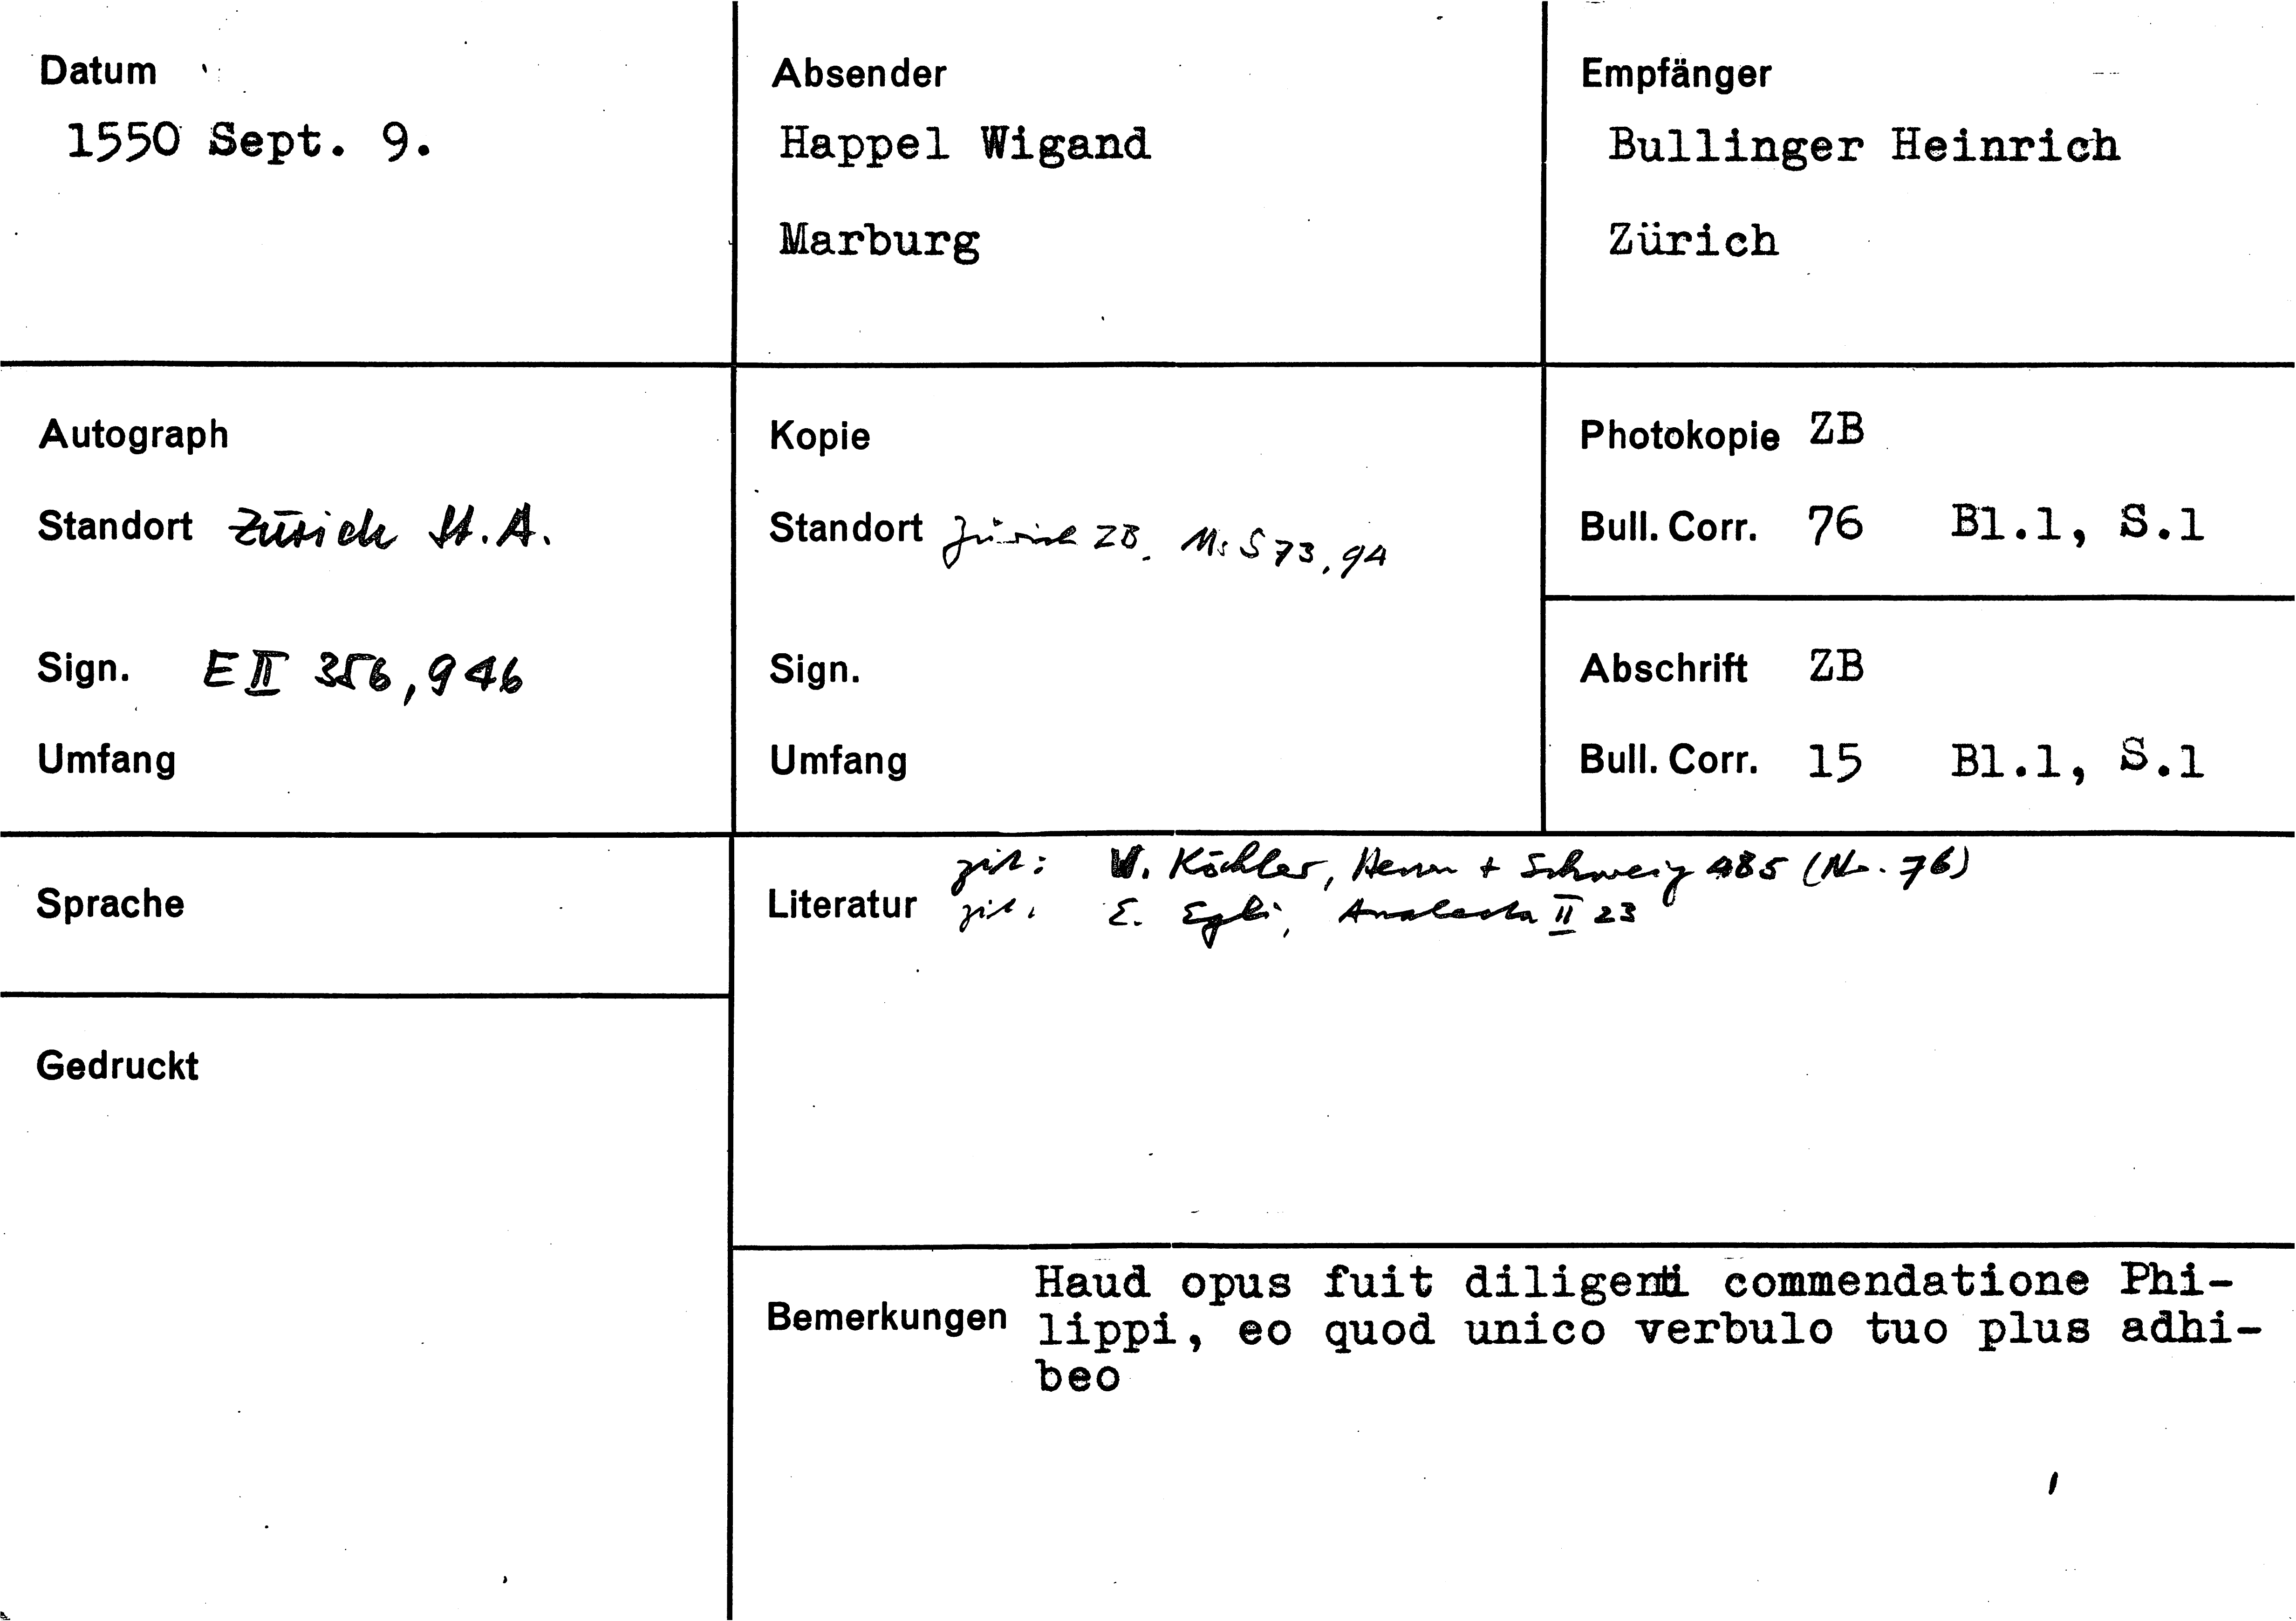 Datum
1550 Sept. 9.
Absender
Happel Wigand
Marburg
Empfänger
Bullinger Heinrich
Zürich
Autograph
Standort Zürich St.A.
Sign. E II 356,946
Umfang
Kopie
Standort Zürich ZB, Ms S 73, 94
Sign.
Umfang
Photokopie ZB
Bull. Corr. 76 Bl.1, S.1
Abschrift ZB
Bull. Corr. 15 Bl.1, S.1
Sprache
Gedruckt
Literatur
zit: W. Köhler, Hessen + Schweiz 485 (Nr. 76)
zit: E. Egli, Analecta II 23
Bemerkungen
Haud opus fuit diligenti commendatione Phi-
lippi, eo quod unico verbulo tuo plus adhi-
beo